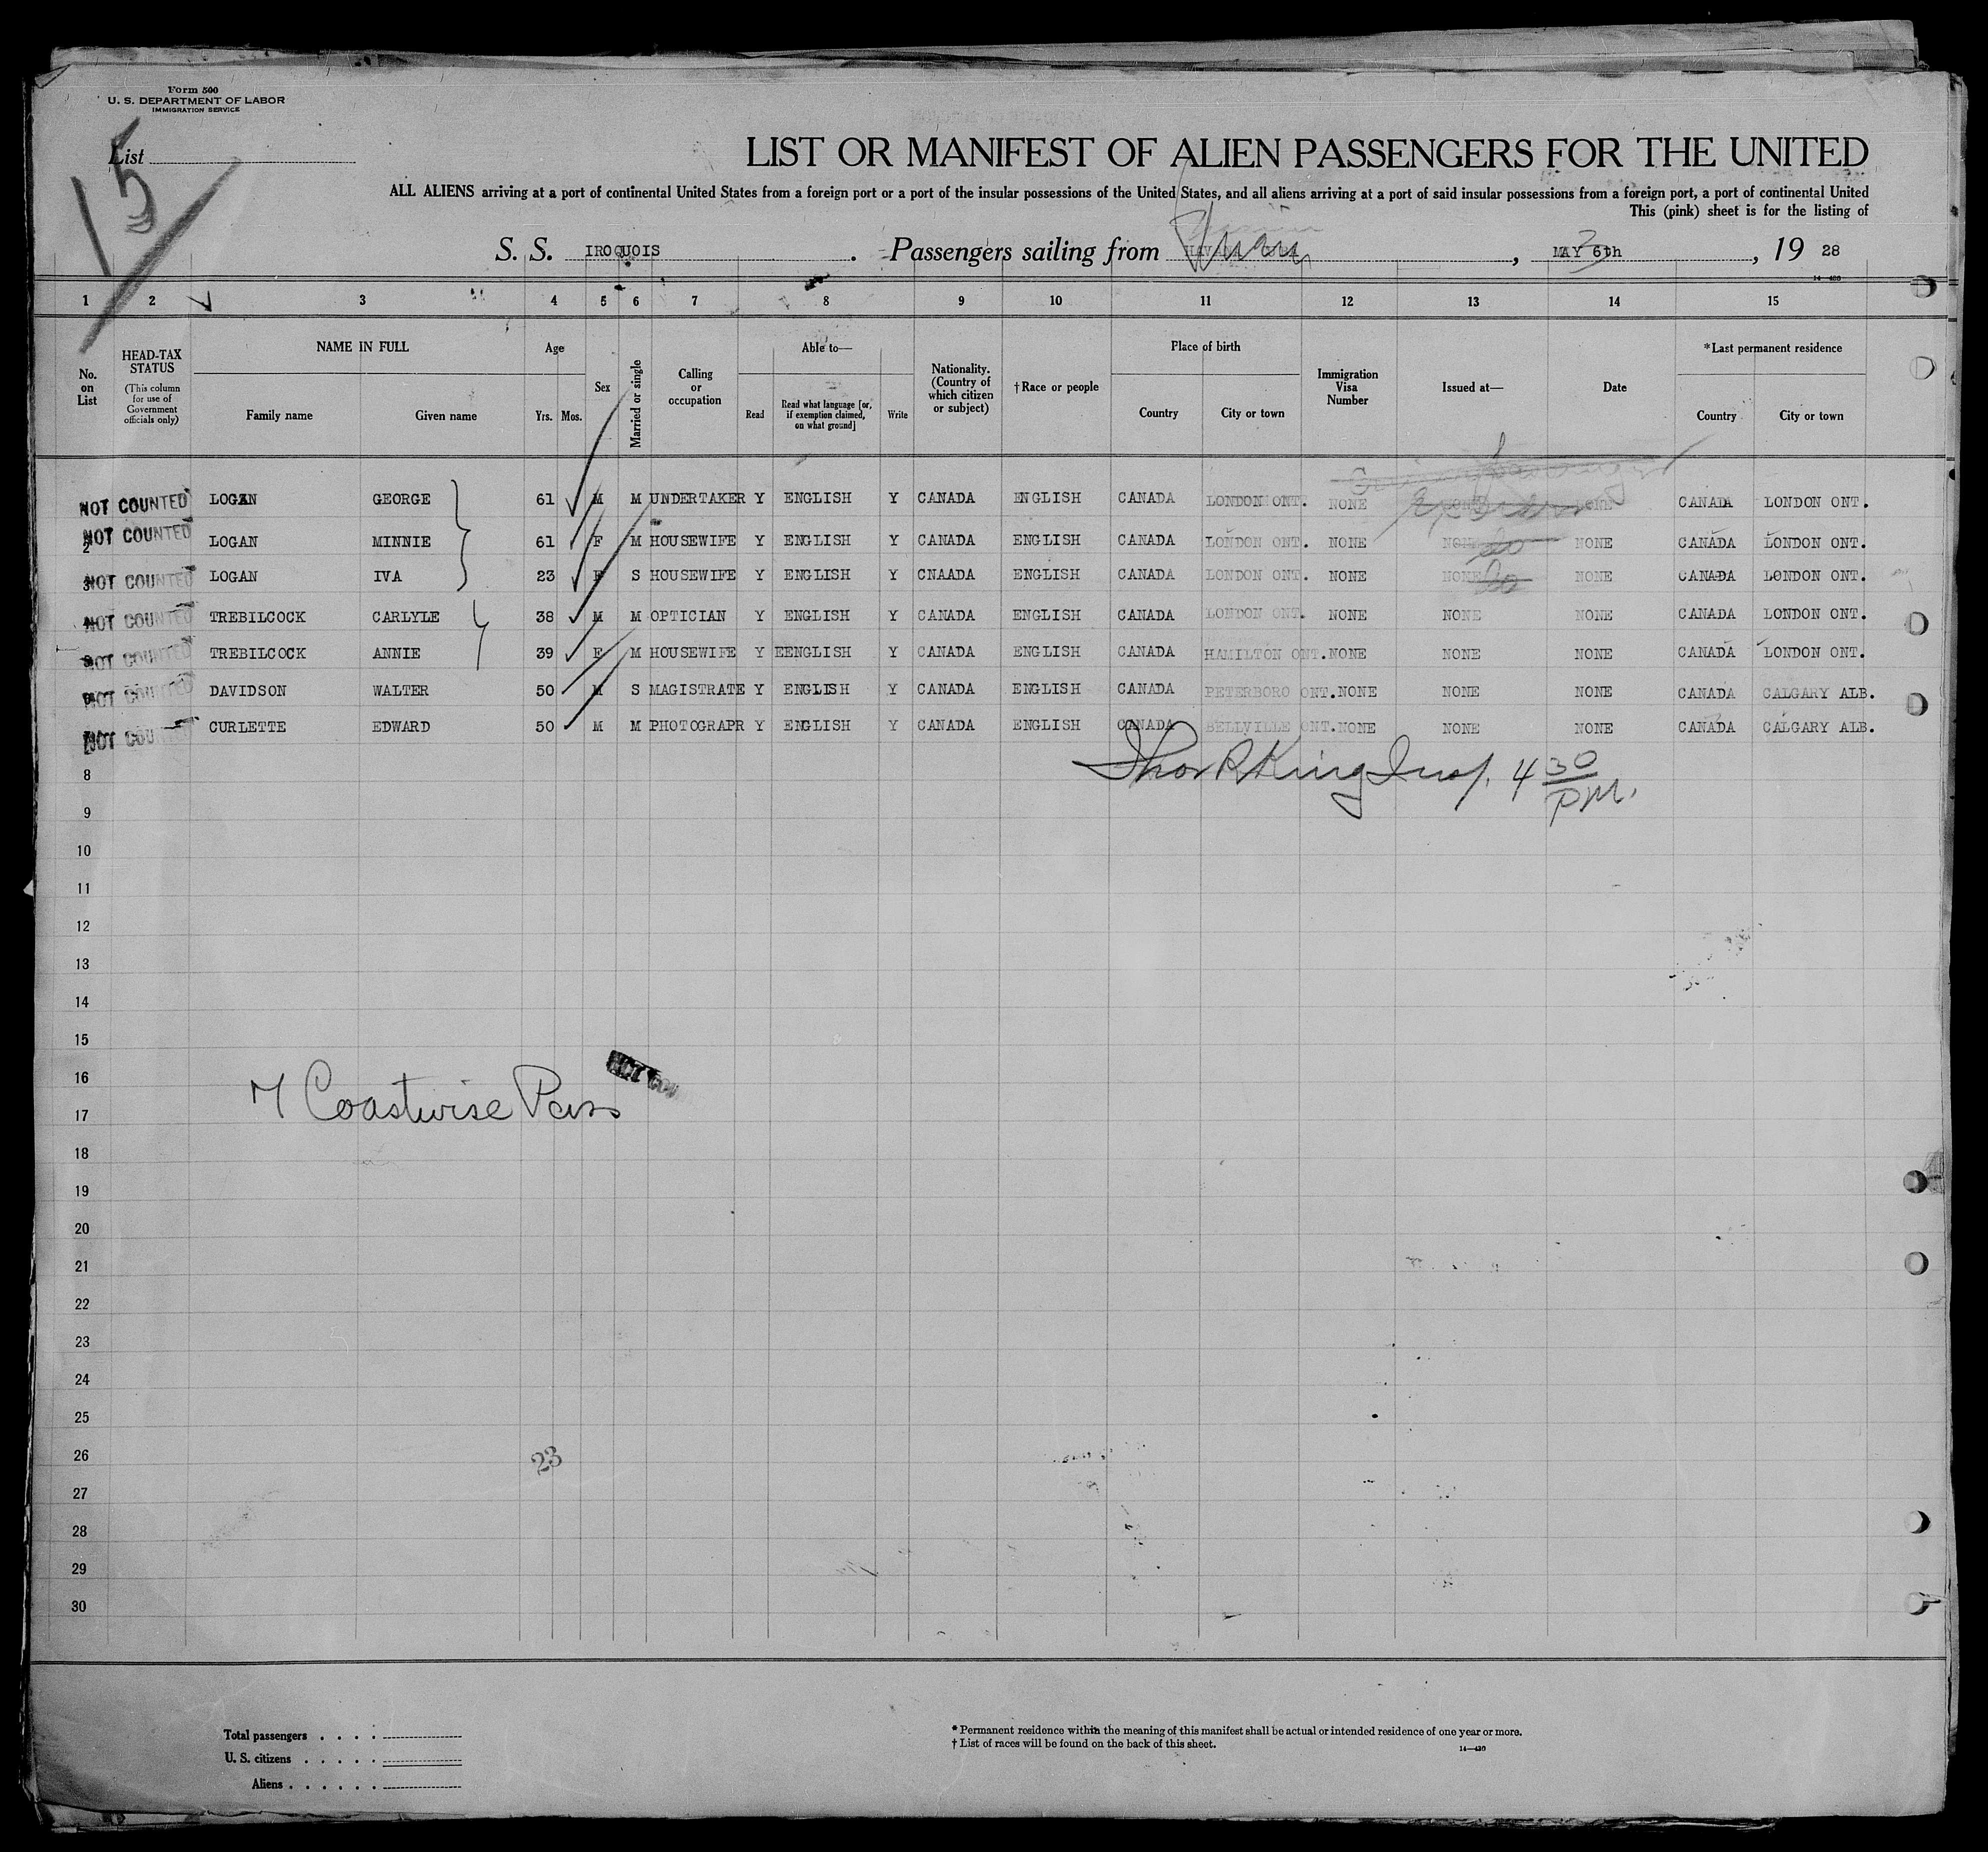 Form 500
U. S. DEPARTMENT OF LABOR
IMMIGRATION SERVICE
List
15
LIST OR MANIFEST OF ALIEN PASSENGERS FOR THE UNITED
ALL ALIENS arriving at a port of continental United States from a foreign port or a port of the insular possessions of the United States, and all aliens arriving at a port of said insular possessions from a foreign port, a port of continental United
This (pink) sheet is for the listing of
S. S. IROQUOIS . Passengers sailing from , MAY 6th , 19 28
14—430
1 2 3 4 5 6 7 8 9 10 11 12 13 14 15
No. on List HEAD-TAX STATUS (This column for use of Government officials only) NAME IN FULL Family name Given name Age Yrs. Mos. Sex Married or single Calling or occupation Able to— Read Read what language [or, if exemption claimed, on what ground] Write Nationality. (Country of which citizen or subject) † Race or people Place of birth Country City or town Immigration Visa Number Issued at— Date *Last permanent residence Country City or town
NOT COUNTED LOGAN GEORGE 61 M M UNDERTAKER Y ENGLISH Y CANADA ENGLISH CANADA LONDON ONT. NONE NONE CANADA LONDON ONT.
2 NOT COUNTED LOGAN MINNIE 61 F M HOUSEWIFE Y ENGLISH Y CANADA ENGLISH CANADA LONDON ONT. NONE NONE do NONE CANADA LONDON ONT.
3 NOT COUNTED LOGAN IVA 23 F S HOUSEWIFE Y ENGLISH Y CNAADA ENGLISH CANADA LONDON ONT. NONE NONE do NONE CANADA LONDON ONT.
NOT COUNTED TREBILCOCK CARLYLE 38 M M OPTICIAN Y ENGLISH Y CANADA ENGLISH CANADA LONDON ONT. NONE NONE NONE CANADA LONDON ONT.
NOT COUNTED TREBILCOCK ANNIE 39 F M HOUSEWIFE Y EENGLISH Y CANADA ENGLISH CANADA HAMILTON ONT. NONE NONE NONE CANADA LONDON ONT.
NOT COUNTED DAVIDSON WALTER 50 M S MAGISTRATE Y ENGLISH Y CANADA ENGLISH CANADA PETERBORO ONT. NONE NONE NONE CANADA CALGARY ALB.
NOT COUNTED CURLETTE EDWARD 50 M M PHOTOGRAPR Y ENGLISH Y CANADA ENGLISH CANADA BELLVILLE ONT. NONE NONE NONE CANADA CALGARY ALB.
Thos R King Insp. 4 30 PM.
8
9
10
11
12
13
14
15
16
NOT COU
7 Coastwise Pass
17
18
19
20
21
22
23
24
25
26 23
27
28
29
30
Total passengers . . . .
U. S. citizens . . . . .
Aliens . . . . . .
* Permanent residence within the meaning of this manifest shall be actual or intended residence of one year or more.
† List of races will be found on the back of this sheet.
14—430